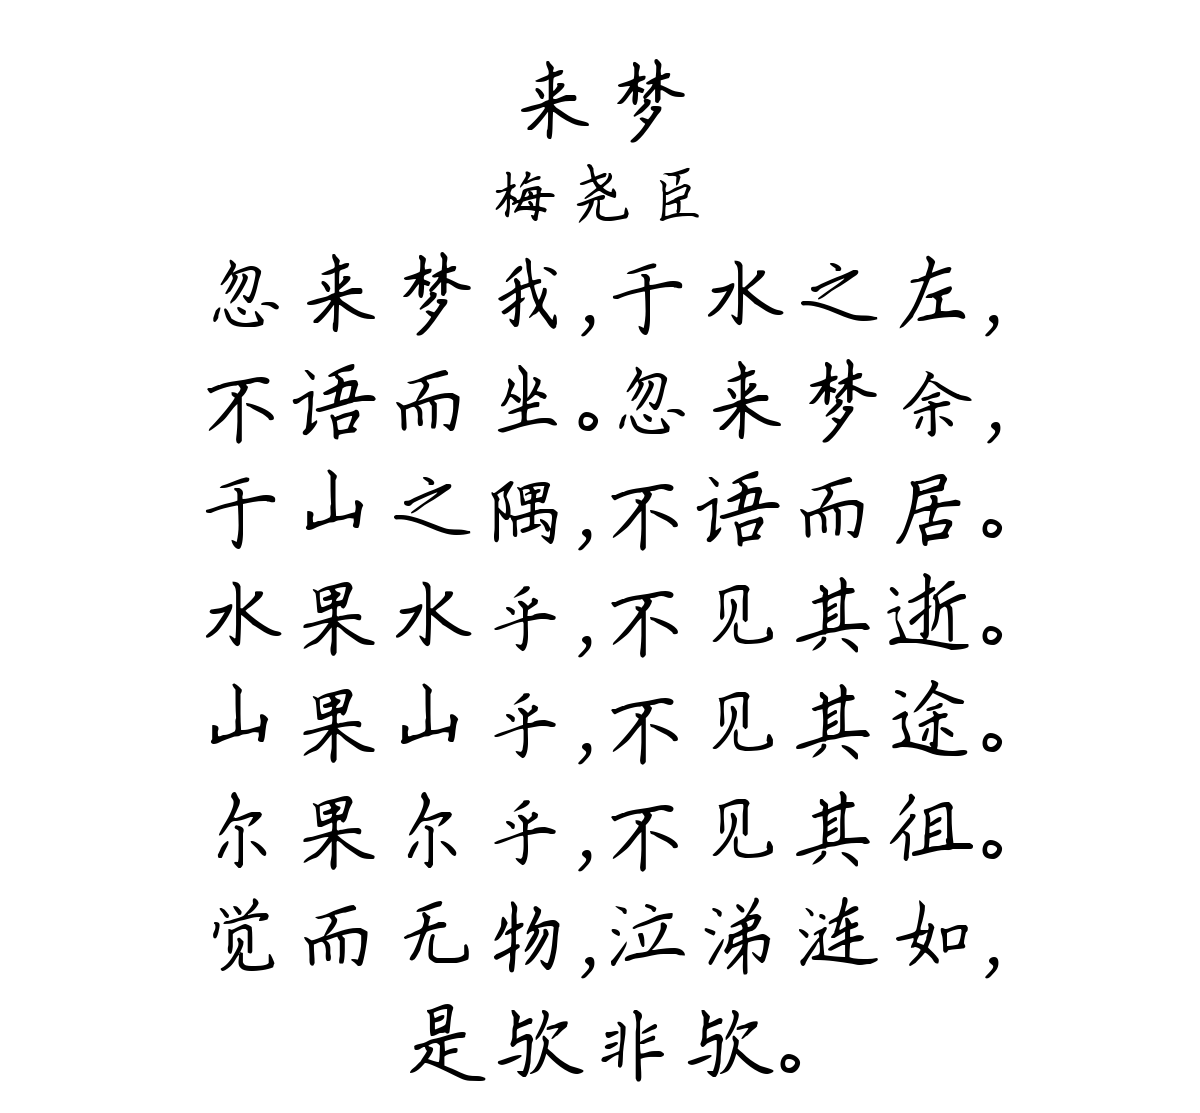 来梦
梅尧臣
忽来梦我,于水之左,
不语而坐。忽来梦余,
于山之隅,不语而居。
水果水乎,不见其逝。
山果山乎,不见其途。
尔果尔乎,不见其徂。
觉而无物,泣涕涟如,
是欤非欤。